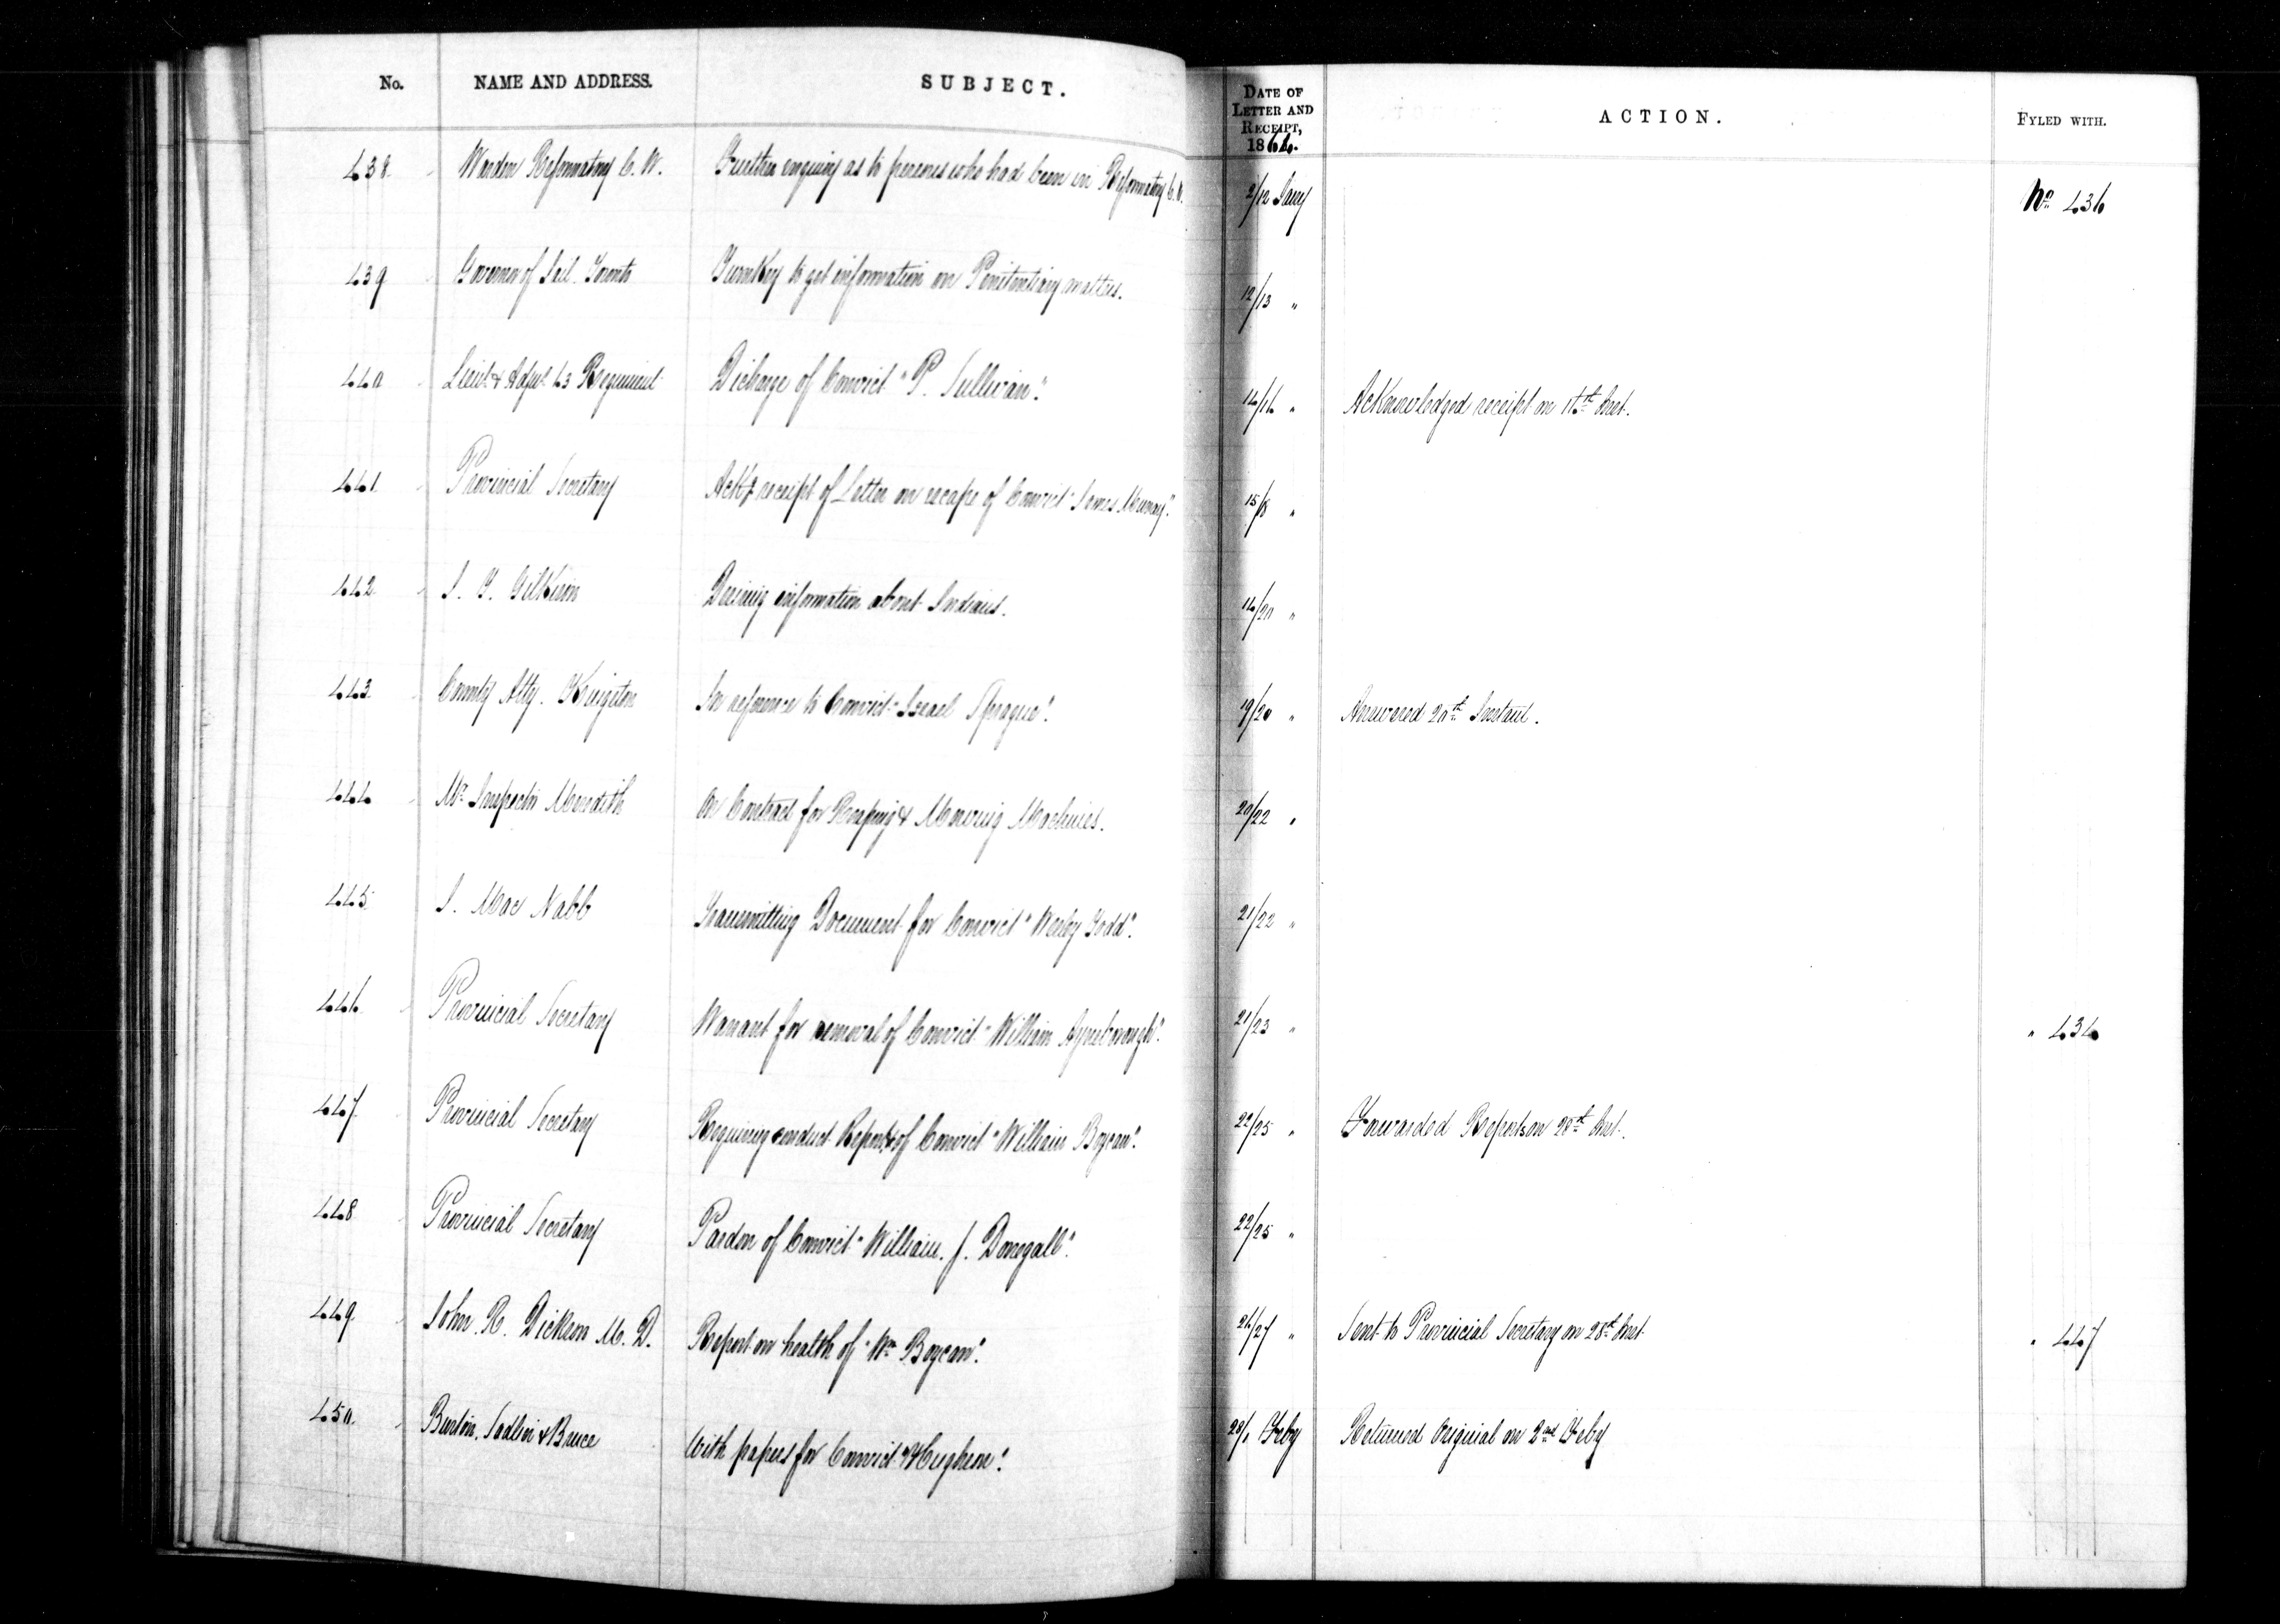 No. NAME AND ADDRESS. SUBJECT. DATE OF LETTER AND RECEIPT, 1864. ACTION. FYLED WITH.
438 Warden Reformatory C. W. Further enquiry as to persons who had been in Reformatory C.W. 2/12 Jany No 436
439 Governor of Jail. Toronto Turnkey to get information on Penitentiary matters. 12/13 "
440 Lieut & Adjut 63 Regiment Dicharge of Convict "P. Sullivan". 14/16 " Acknowledged receipt on 16th Inst.
441 Provincial Secretary Ackg receipt of Letter on escape of Convict "James Murray". 15/18 "
442 J. T. Gilkison Desiring information about Indians. 16/20 "
443 County Atty. Kingston In reference to Convict "Israel Sprague". 19/20 " Answered 20th Instant.
444 Mr Inspector Meredith On Contract for Reaping & Mowing Machines. 20/22 "
445 J. Mac Nabb Transmitting Document for Convict "Wesley Todd". 21/22 "
446 Provincial Secretary Warrant for removal of Convict "William". 21/23 " " 434
447 Provincial Secretary Requiring conduct Report of Convict "William Boycan". 22/25 " Forwarded Reports on 28th Inst.
448 Provincial Secretary Pardon of Convict "William. J. Donegall". 22/25 "
449 John. R. Dickson M. D. Report on health of "Wm Boycan". 26/27 " Sent to Provincial Secretary on 28th Inst. " 447
450. Burton, Sadleir & Bruce With papers for Convict "Hughson". 28/1 Feby Returned Original on 2nd Feby